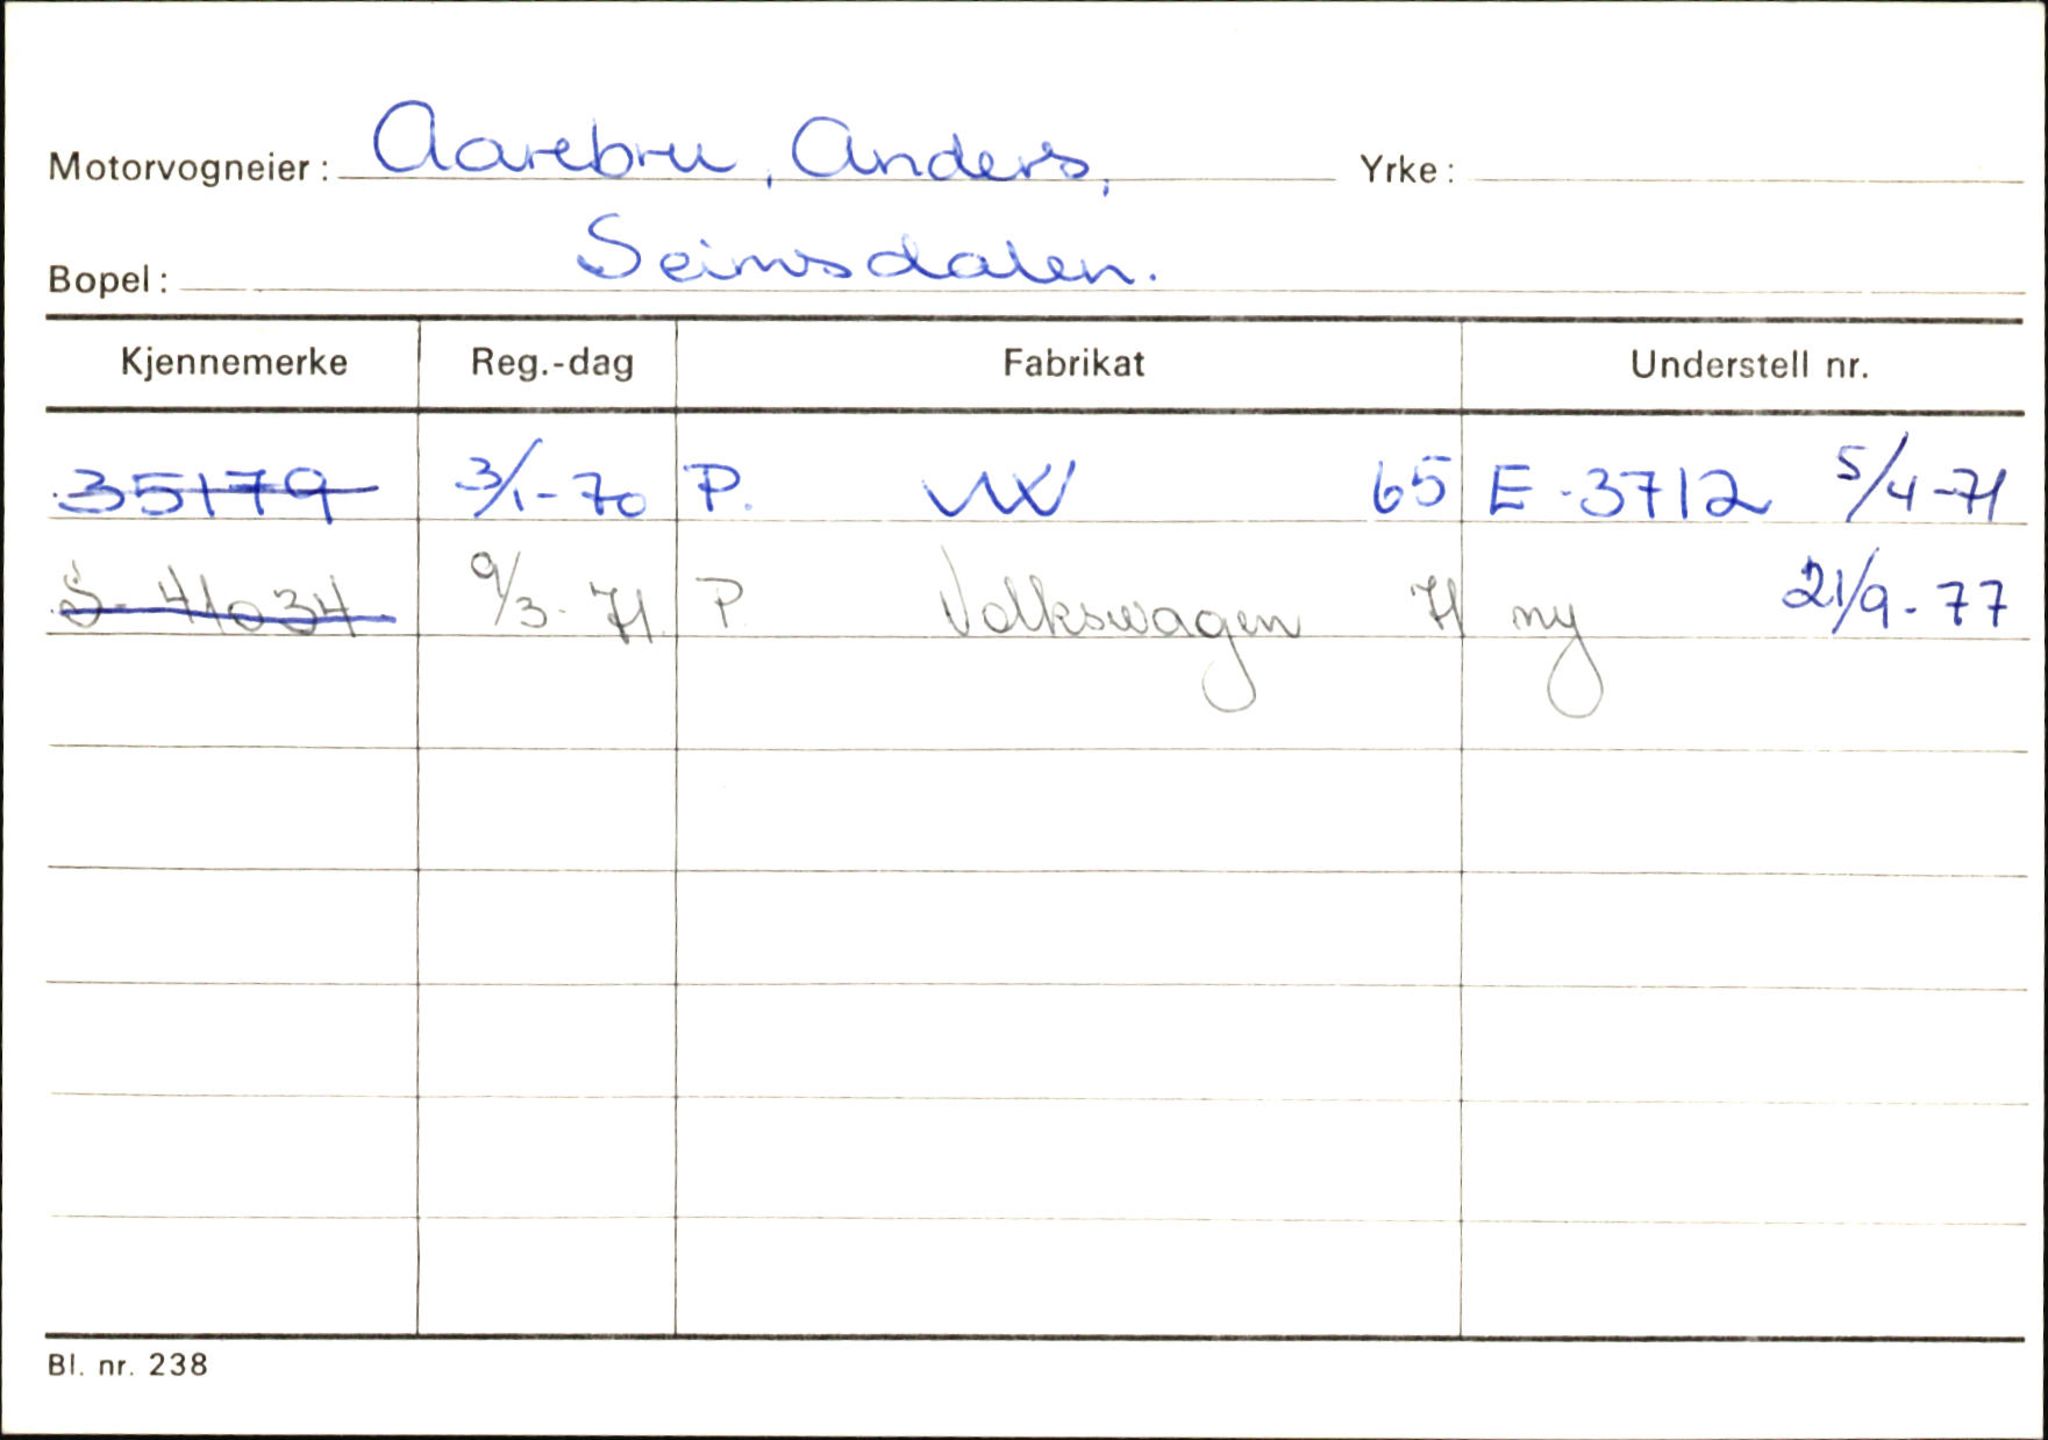 Motorvogneier: Aarebru, Anders, Yrke:
Bopel: Seimsdalen.
Kjennemerke Reg.-dag Fabrikat Understell nr.
35179 3/1-70 P. VW 65 E-3712 5/4-71
S-41034 9/3-71 P. Volkswagen 71 ny 21/9-77
Bl. nr. 238